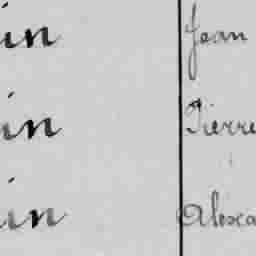 in Jean
in Pierre
in Alexa